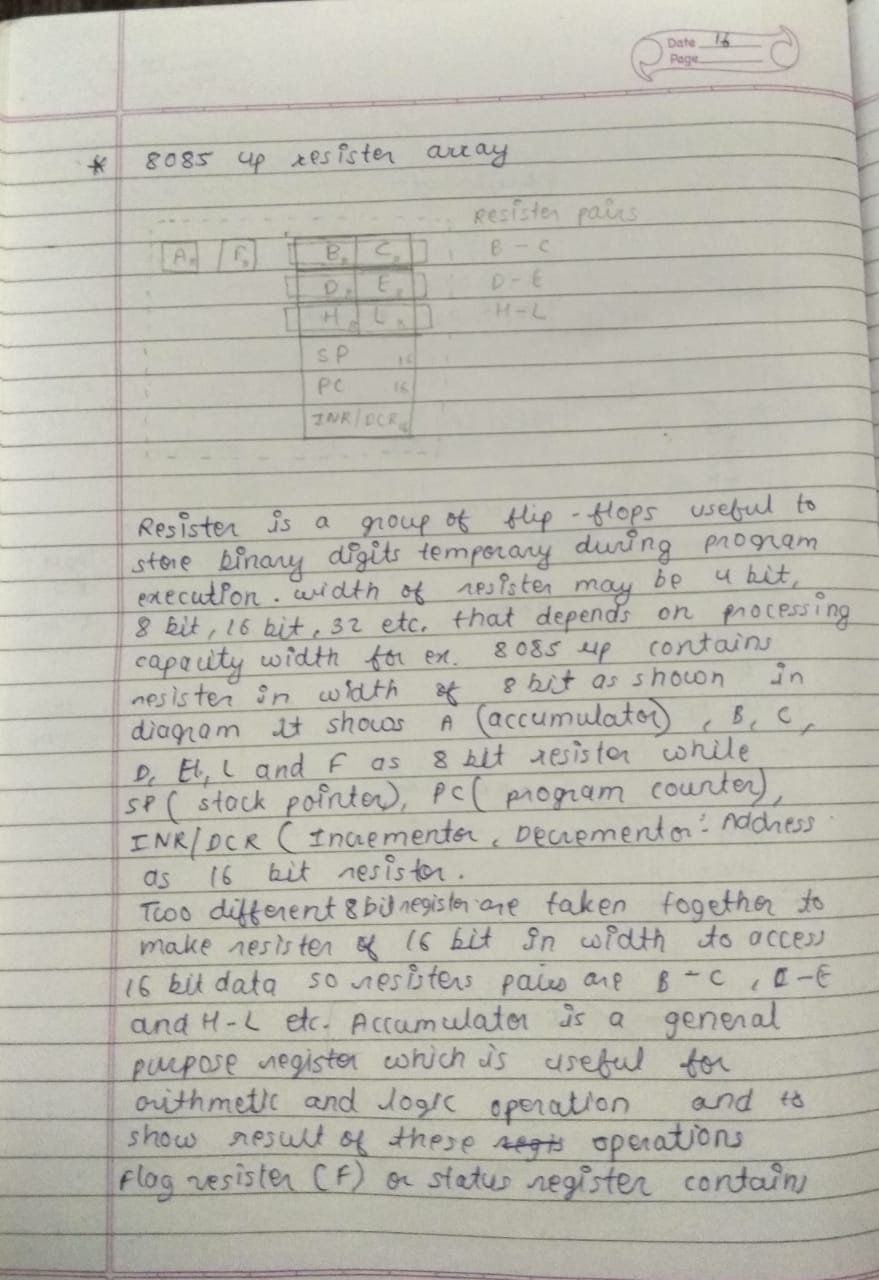 Date 16
Page
* 8085 up resister array
Resister pairs
A8 F8 B8 C8 B - C
D8 E8 D - E
H8 L8 H - L
SP 16
PC 16
INR/DCR 16
Resister is a group of flip - flops useful to
store binary digits temporary during program
execution. width of resister may be 4 bit,
8 bit, 16 bit, 32 etc. that depends on processing
capacity width for ex. 8085 up contains
resister in width of 8 bit as shown in
diagram It shows A (accumulator), B, C,
D, EH, L and F as 8 bit resister while
SP ( stack pointer), PC ( program counter),
INR/DCR ( Incrementor, Decrementor: Address
as 16 bit resister.
Two different 8 bit register are taken together to
make resister of 16 bit in width to access
16 bit data so resisters pairs are B - C, D - E
and H - L etc. Accumulator is a general
purpose register which is useful for
arithmetic and logic operation and to
show result of these operations
Flag resister (F) or status register contains